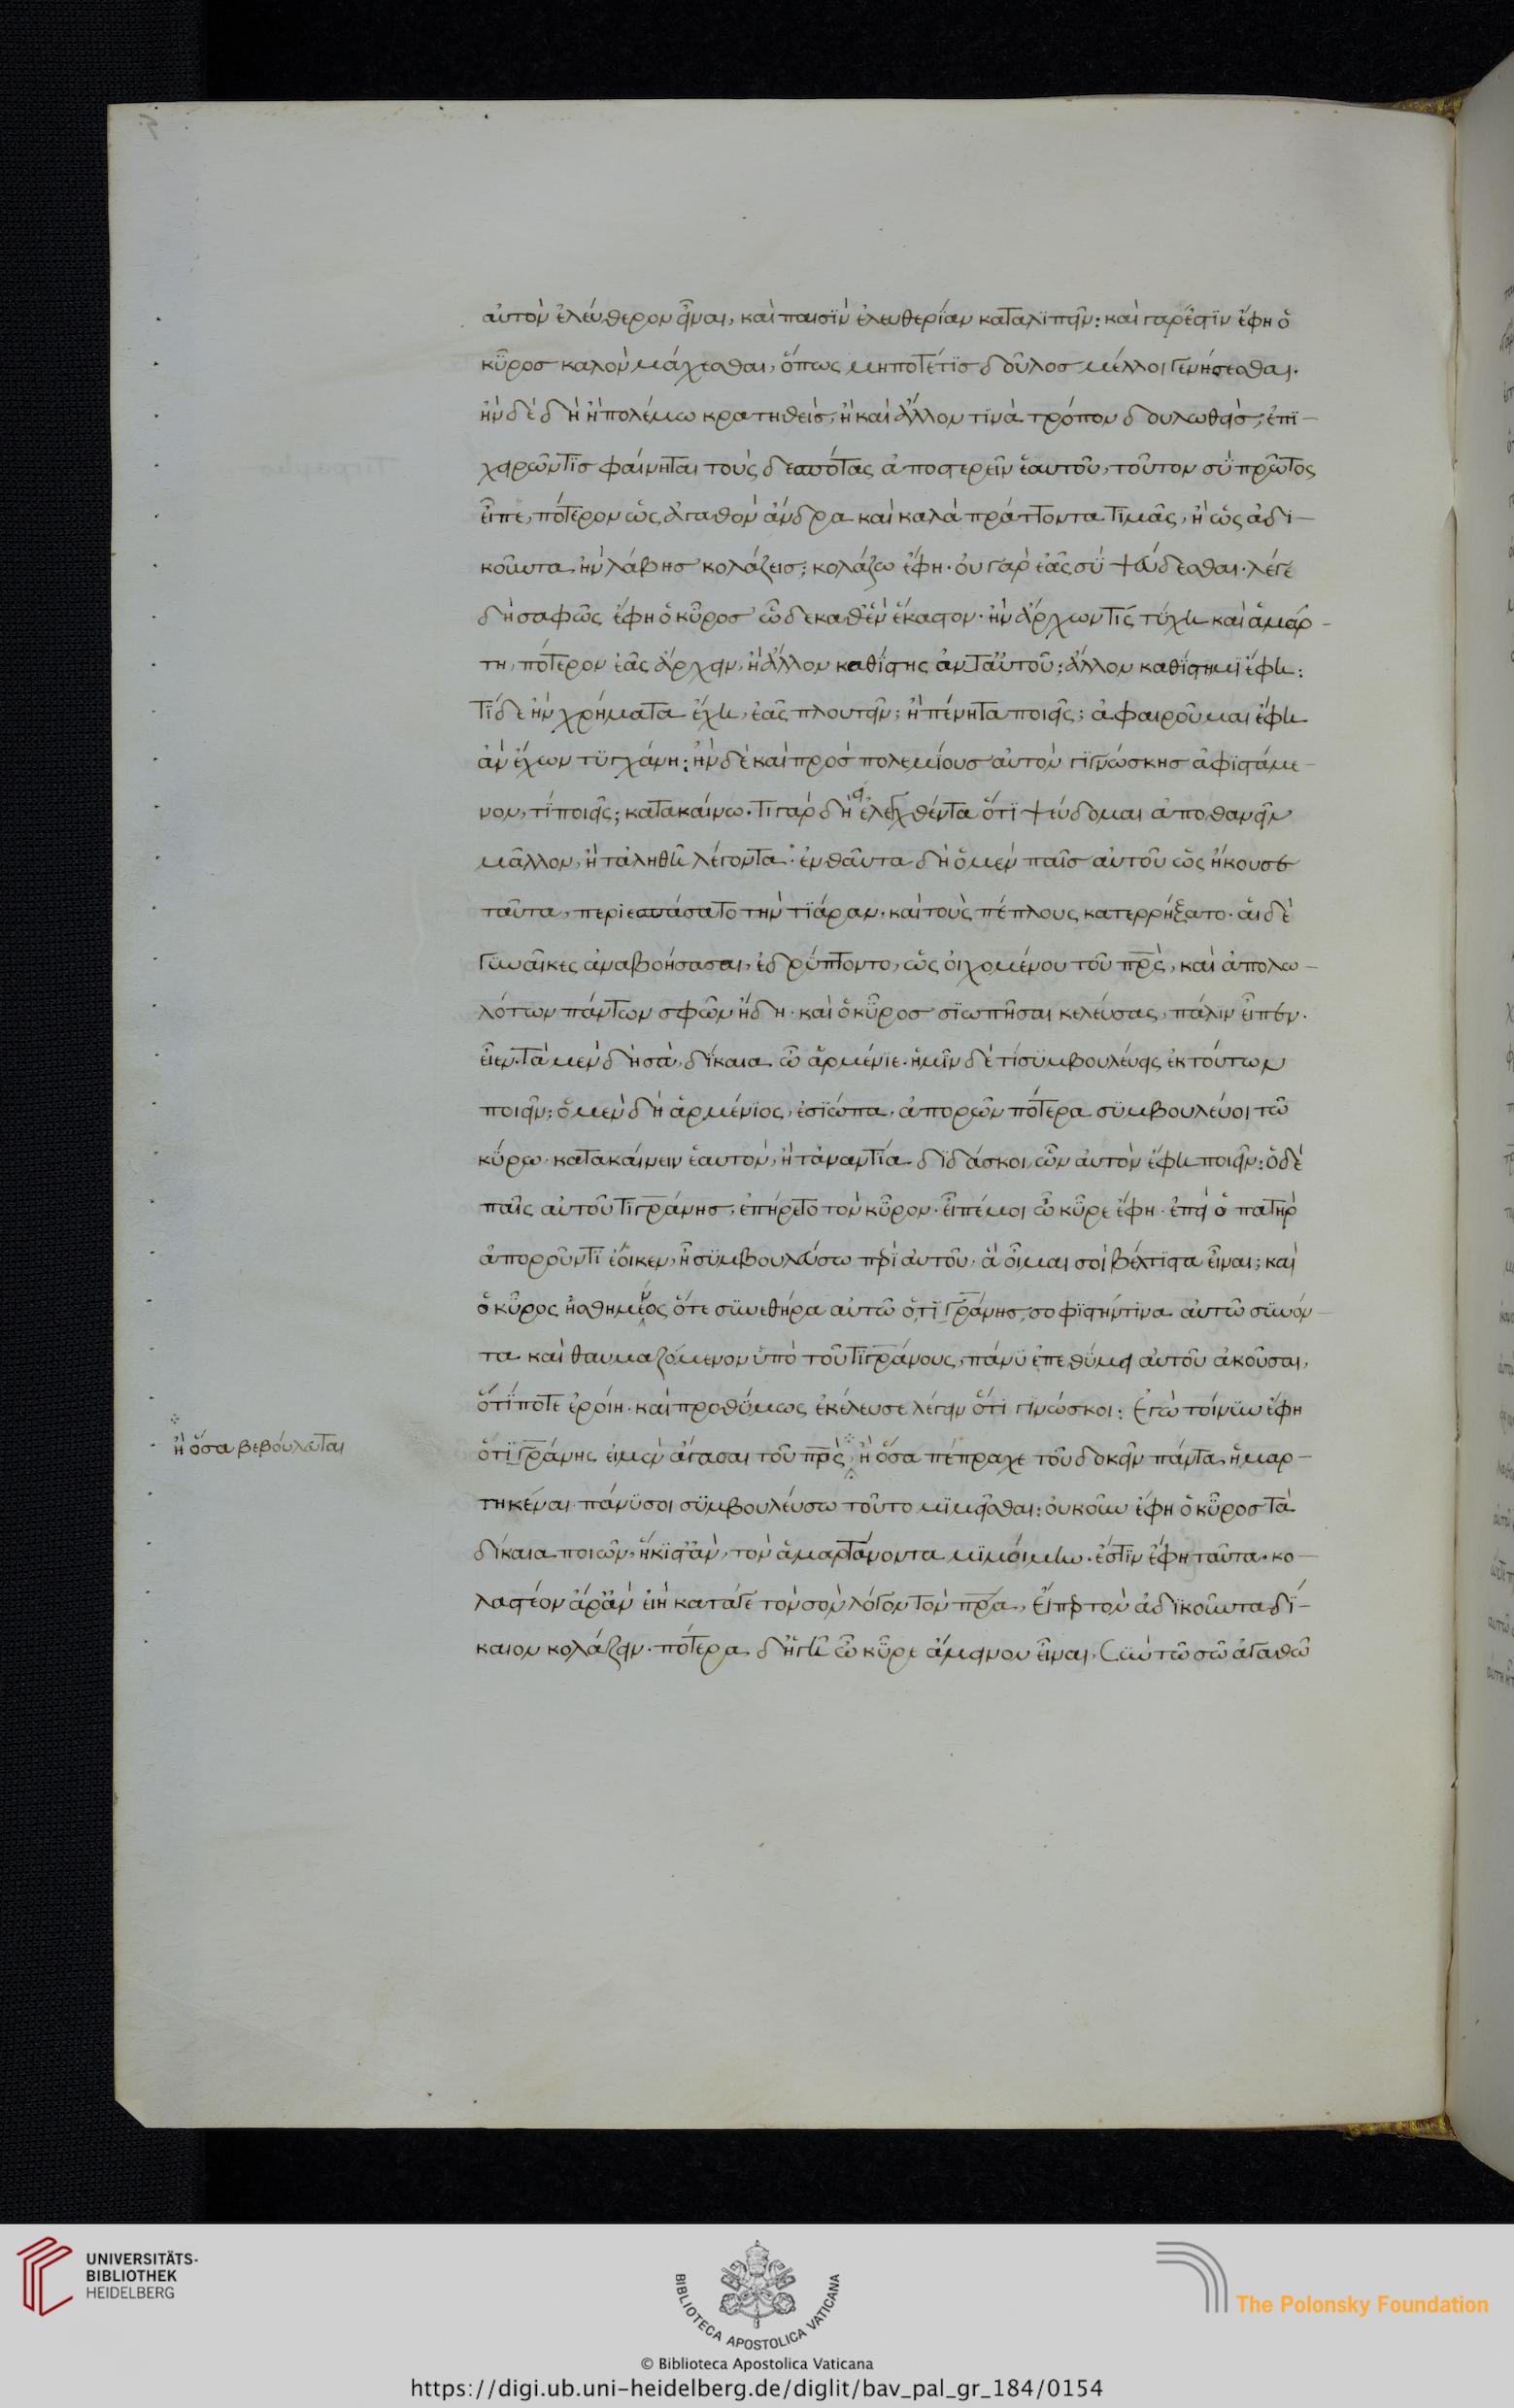 αὐτὸν ἐλεύθερον εἶναι, καὶ παισῒν ἐλευθερίαν καταλϊπεῖν: καὶ γαρ ἔστϊν ἔφη ὁ
κῦρος καλὸν μάχεσθαι, ὅπως μηποτέ τϊς δοῦλος μέλλοι γενήσεσθαι.
ἢν δὲ δὴ ἢ πολέμω κρατηθεὶς, ἢ καὶ ἄλλον τϊνὰ τρόπον δουλωθεὶς, ἐπϊ-
χειρῶν τϊς φαίνηται τοὺς δεσπότας ἀποστερεῖν ἑαυτοῦ, τοῦτον σῢ πρῶτος
εἶπε, πότερον ὡς ἀγαθὸν ἄνδρα καὶ καλὰ πράττοντα τϊμᾶς, ἢ ὡς ἀδι-
κοῦντα ἢν λάβης κολάζεις; κολάζω ἔφη. οὐ γὰρ ἐᾶς σῢ ψεύδεσθαι. λέγε
δὴ σαφῶς ἔφη ὁ κῦρος ὧδε καθὲν ἕκαστον. ἢν ἄρχων τίς τύχη καὶ ἁμάρ-
τη, πότερον ἐᾶς ἄρχειν, ἢ ἄλλον καθίστης ἀντ αὐτοῦ; ἄλλον καθίστημϊ ἔφη:
Τί δε ἢν χρήματα ἔχη, ἐᾶς πλουτεῖν; ἢ πένητα ποιεῖς; ἀφαιροῦμαι ἔφη
ἂν ἔχων τϋγχάνη: ἢν δὲ καὶ πρὸς πολεμίους αὐτὸν γϊγνώσκης ἀφϊστάμε-
νον, τί ποιεῖς; κατακαίνω. Τι γαρ δεῖ ἐλεγχθέντα ὅτϊ ψεύδομαι ἀποθανεῖν
μᾶλλον, ἢ τἀληθῆ λέγοντα. ἐνθαῦτα δὴ ὁ μεν παῖς αὐτοῦ ὡς ἤκουσε
ταῦτα, περιεσπάσατο τὴν τϊάραν. καὶ τοὺς πέπλους κατερρήξατο. αἱ δὲ
Γϋναῖκες ἀναβοήσασαι, ἐδρύπτοντο, ὡς οἰχομένου τοῦ πρς, καὶ ἀπολω-
λότων πάντων σφῶν ἤδη. καὶ ὁ κῦρος σϊωπῆσαι κελεύσας, πάλιν εἶπεν.
εἶεν. τὰ μεν δὴ σὰ, δίκαια ὦ ἀρμένϊε. ἡμῖν δὲ τί σϋμβουλεύεις ἐκ τούτων
ποιεῖν; ὁ μὲν δὴ ἀρμένϊος, ἐσϊώπα, ἀπορῶν πότερα σϋμβουλεύοι τῶ
κύρω, κατακαίνειν ἑαυτὸν, ἢ τἀναντία δϊδάσκοι, ὧν αὐτὸν ἔφη ποιεῖν: ὁ δὲ
παῖς αὐτοῦ τιγράνης, ἐπήρετο τὸν κῦρον. εἶπέ μοι ὦ κῦρε ἔφη. ἐπεὶ ὁ πατὴρ
ἀποροῦντϊ ἔοικεν, ἦ σϋμβουλεύσω πρι αυτοῦ, ἃ οἶμαι σοὶ βέλτϊστα εἶναι; καὶ
ὁ κῦρος ἠσθημένος ὅτε σϋνεθήρα αὐτῶ ὁ τϊγράνης, σοφϊστήν τινα αὐτῶ σϋνόν-
τα καὶ θαυμαζόμενον ὑπὸ τοῦ τιγράνους, πάνϋ ἐπεθύμει αὐτοῦ ἀκοῦσαι,
ὅ τϊ ποτε ἐροίη. καὶ προθύμως ἐκέλευσε λέγειν ὅ τι γϊνώσκοι: Ἐγὼ τοίνϋν ἔφη
ὁ τϊγράνης εἰ μεν ἄγασαι τοῦ πρς, ἢ ὅσα πέπραχε τοῦ δοκεῖν πάντα ἡμαρ-
τηκέναι, πάνϋ σοι σϋμβουλεύσω τοῦτο μϊμεῖσθαι: οὐκοῦν ἔφη ὁ κῦρος τὰ
δίκαια ποιῶν, ἥκϊστ ἂν, τὸν ἁμαρτάνοντα μϊμοίμην. ἔστϊν ἔφη ταῦτα. κο-
λαστέον ἄρ ἂν εἴη κατάγε τὸν σὸν λόγον τὸν πρα, εἴπερ τὸν ἀδϊκοῦντα δί-
καιον κολάζειν. πότερα δ ἡγῆ ὦ κῦρε ἄμεινον εἶναι, Cϋν τῶ σῶ ἀγαθῶ
ἢ ὅσα βεβούλευται
UNIVERSITÄTS-
BIBLIOTHEK
HEIDELBERG
BIBLIOTECA APOSTOLICA VATICANA
The Polonsky Foundation
© Biblioteca Apostolica Vaticana
https://digi.ub.uni-heidelberg.de/diglit/bav_pal_gr_184/0154